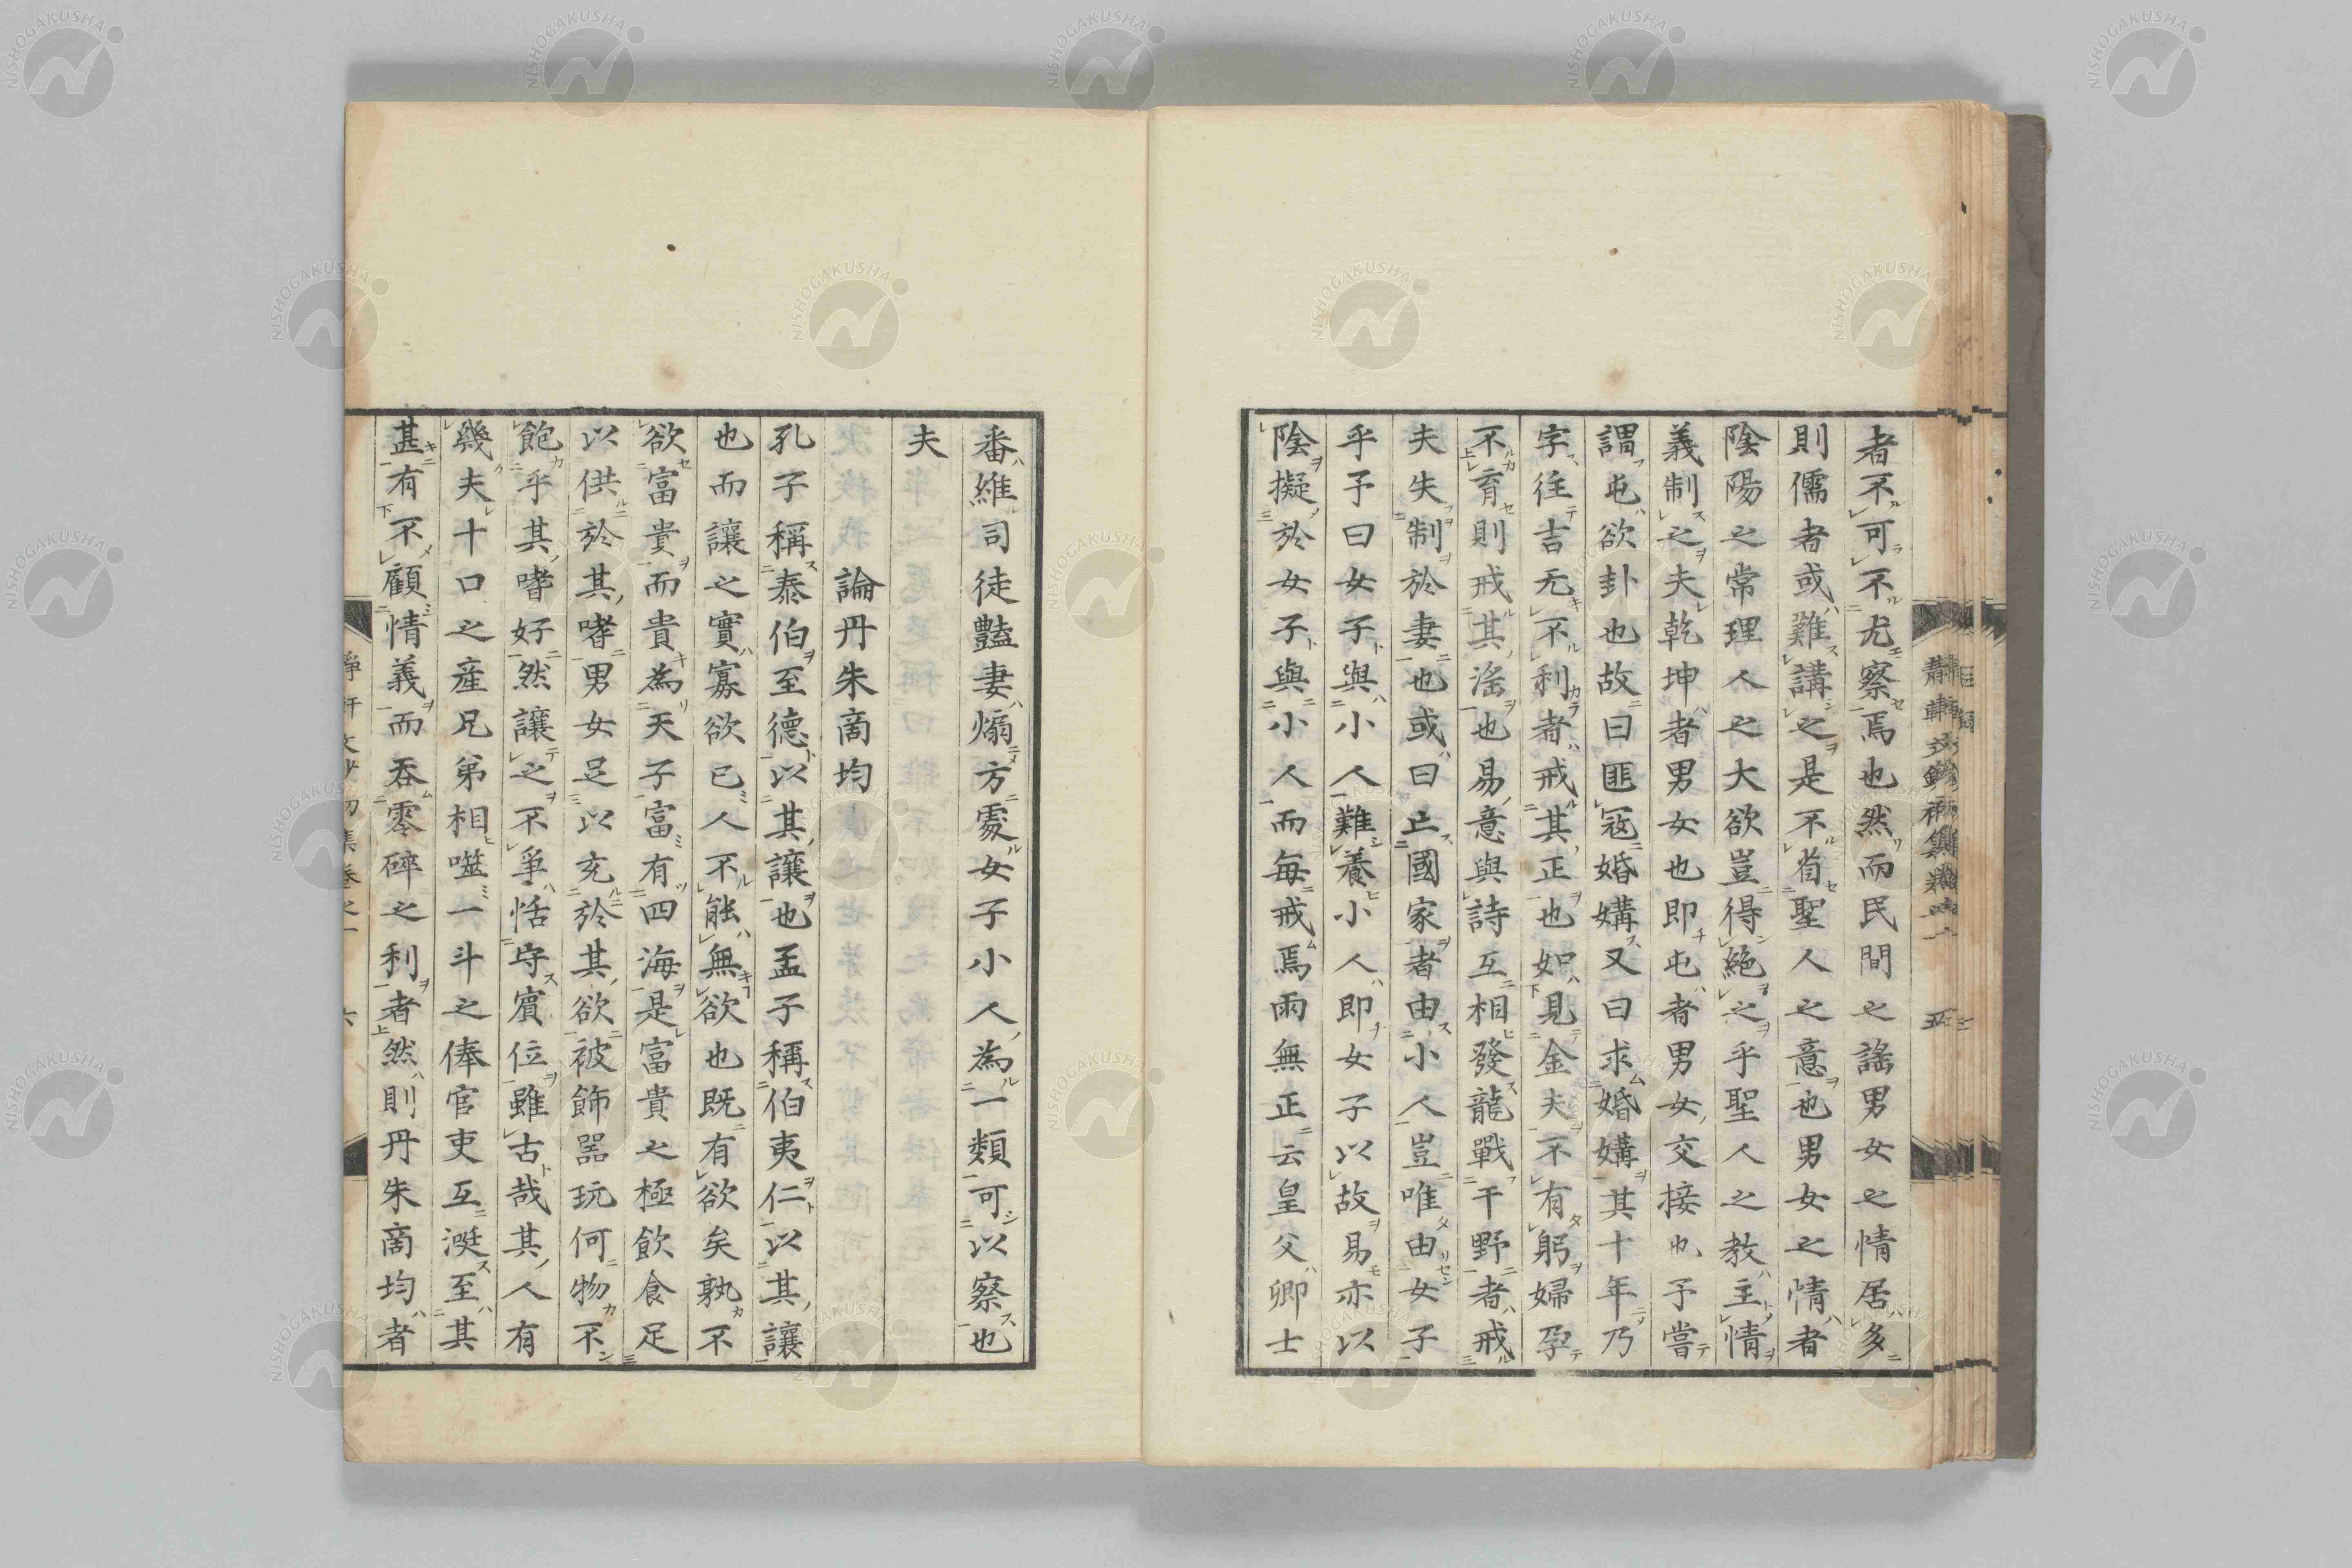 者不可不尤察焉也然而民間之謡男女之情居多
則儒者或難講之是不脊聖人之意也男女之情者
陰陽之常理人之大欲豈得絶之乎聖人之教主情
義制之夫乾坤者男女也即屯者男女交接也予嘗
謂屯欲卦也故曰匪寇婚媾又曰求婚媾其十年乃
字往吉无不利者戒其正也如見金夫不有躬婦孕
不育則戒其淫也易意與詩互相發龍戰于野者戒
夫失制於妻也或曰亡國家者由小人豈唯由女子
乎予曰女子與小人難養小人即女子以故易亦以
陰擬於女子與小人而毎戒焉雨無正云皇父卿士
番維司徒豔妻煽方處女子小人為一類可以察也
夫
論丹朱商均
孔子稱泰伯至德以其讓也孟子稱伯夷仁以其讓
也而讓之實寡欲已人不能無欲也既有欲矣孰不
欲富貴而貴為天子富有四海是富貴之極飲食足
以供於其嗜男女足以充於其欲被飾器玩何物不
飽乎其嗜好然讓之不爭恬守賓位雖古哉其人有
幾夫十口之産兄弟相噬一斗之俸官吏互涎至其
甚有不顧情義而呑零碎之利者然則丹朱商均者